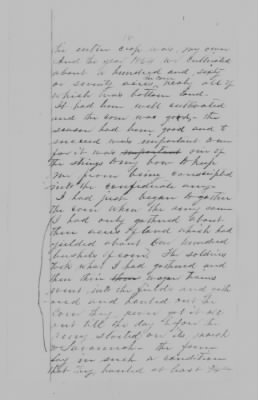 the entire crop was my own
And the year 1864 we cultivated
about a hundred and sixty
or seventy acres the corn nearly all of
which was bottom land.
It had been well cultivated
and the corn was good, the
season had been good and to
succeed was important
for it was important one of
the strings to my bow to keep
me from being conscripted
into the confederate army.
I had just began to gather
the corn when the army came
I had only gathered about
three acres of land which had
yielded about one hundred
bushels of corn. The soldiers
took what I had gathered and
then their wagon trains
went into the fields and
and and hauled out the
corn they
out till the day before the
army started on its march
to Savannah. the farm
lay in such a condition
that they hauled at least